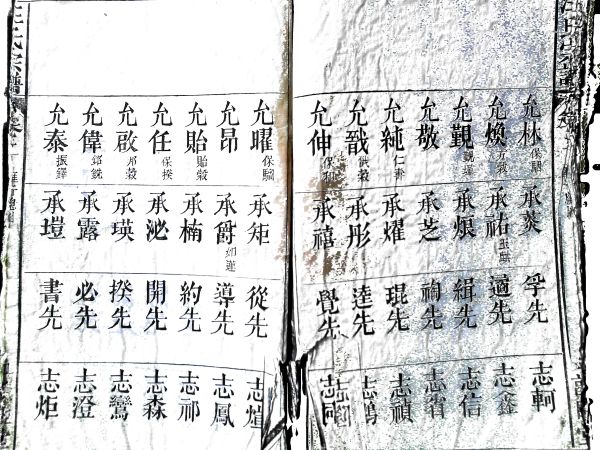 允林 保騏
允煥
允覲
允敬
允純 仁書
允戠
允伸 保和
承葵
承祐
承烺
承芝
承燿
承彤
承禧
孚先
適先
緝先
祹先
琨先
逵先
覺先
志軻
志鑫
志信
志省
志禎
志鵠
允曜 保騮
允昂
允貽 貽穀
允任 保揆
允啟 邦穀
允偉 鄒銳
允泰 振鐸
承矩
承爵 如蓮
承楠
承泌
承瑛
承露
承塏
從先
導先
約先
開先
揆先
必先
書先
志煊
志鳳
志祁
志森
志鸞
志澄
志炬